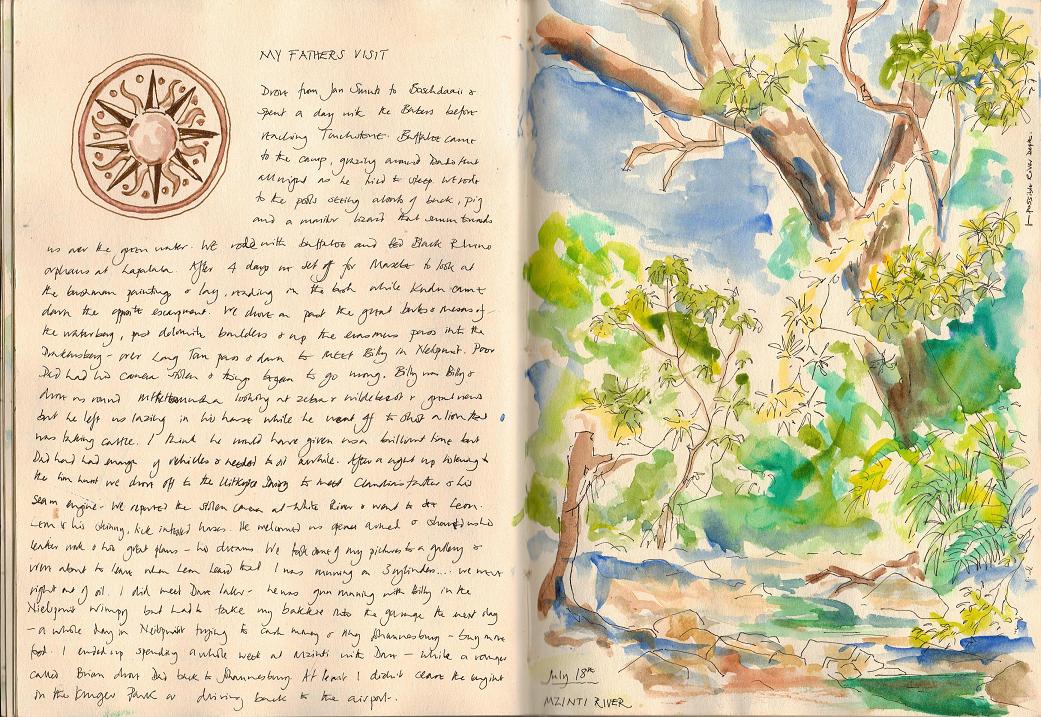 MY FATHERS VISIT
Drove from Jan Smuts to Boschdraai &
spent a day with the Bakers before
reaching Touchstone. Buffaloe came
to the camp, grazing around Dads tent
all night as he tried to sleep. We rode
to the pools seeing a lots of buck, pig
and a monitor lizard that swum towards
us over the green water. We rode with buffaloe and fed Black Rhino
orphans at Lapalala. After 4 days we set off for Masebe to look at
the bushman paintings & lay, reading in the bush while Kudu came
down the opposite escarpment. We drove on past the great buttes & mesas of
the waterberg, past dolomite boulders & up the enormous pass into the
Drakensberg - over Long Tom pass & down to meet Billy in Nelspruit. Poor
Dad had his camera stolen & things began to go wrong. Billy &
drove us round looking at zebra & wildebeest & grand views
but he left us lazing in his house while he went off to shoot a lion that
was taking cattle. I think he would have given us a brilliant time but
Dad had had enough of vehicles & needed to sit awhile. After a night up listening to
the we drove off to the to meet Claudia's father & his
steam engine. We reported the stolen camera at White River & went to see Leon.
Leon & his skinny, tick infested horses. He welcomed us open armed & showed us his
leather work & his great plans - his dreams. We took some of my pictures to a gallery &
were about to leave when Leon heard that I was running on 3 cylinders.... we were
right out of oil. I did meet Dave later - he was gun running with Billy in the
Nelspruit Wimpy but had to take my bakkie into the garage the next day
- a whole day in Nelspruit trying to cash money & ring Johannesburg - buy more
food. I ended up spending a whole week at Mzinti with Dave - while a ranger
called Brian drove Dad back to Johannesburg. At least I didn't cease the engine
in the Kruger Park or driving back to the airport.
July 18th
MZINTI RIVER
River